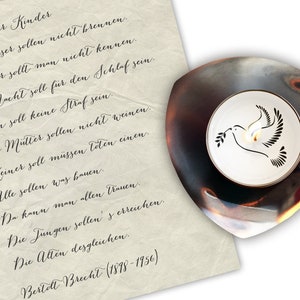 r Kinder
ser sollen nicht brennen.
r sollt man nicht kennen.
acht soll für den Schlaf sein.
n soll keine Straf sein.
Mütter sollen nicht weinen.
einer soll müssen töten einen.
Alle sollen was bauen.
Da kann man allen trauen.
Die Jungen sollen's erreichen.
Die Alten desgleichen.
Bertolt Brecht (1898 - 1956)